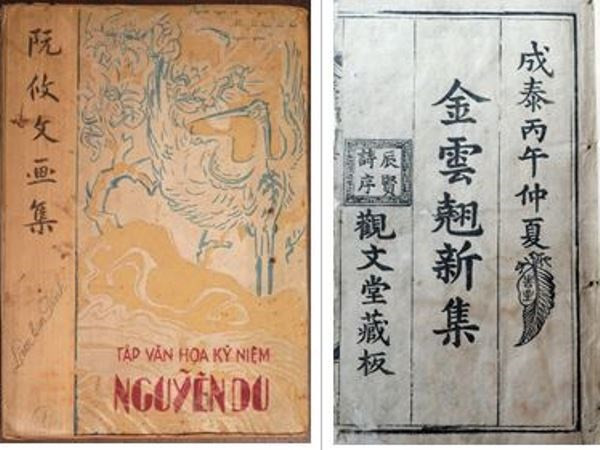 阮攸文画集
TẬP VĂN HỌA KỶ NIỆM
NGUYỄN DU
成泰丙午仲夏
金雲翹新集
辰賢
詩序
觀文堂藏板